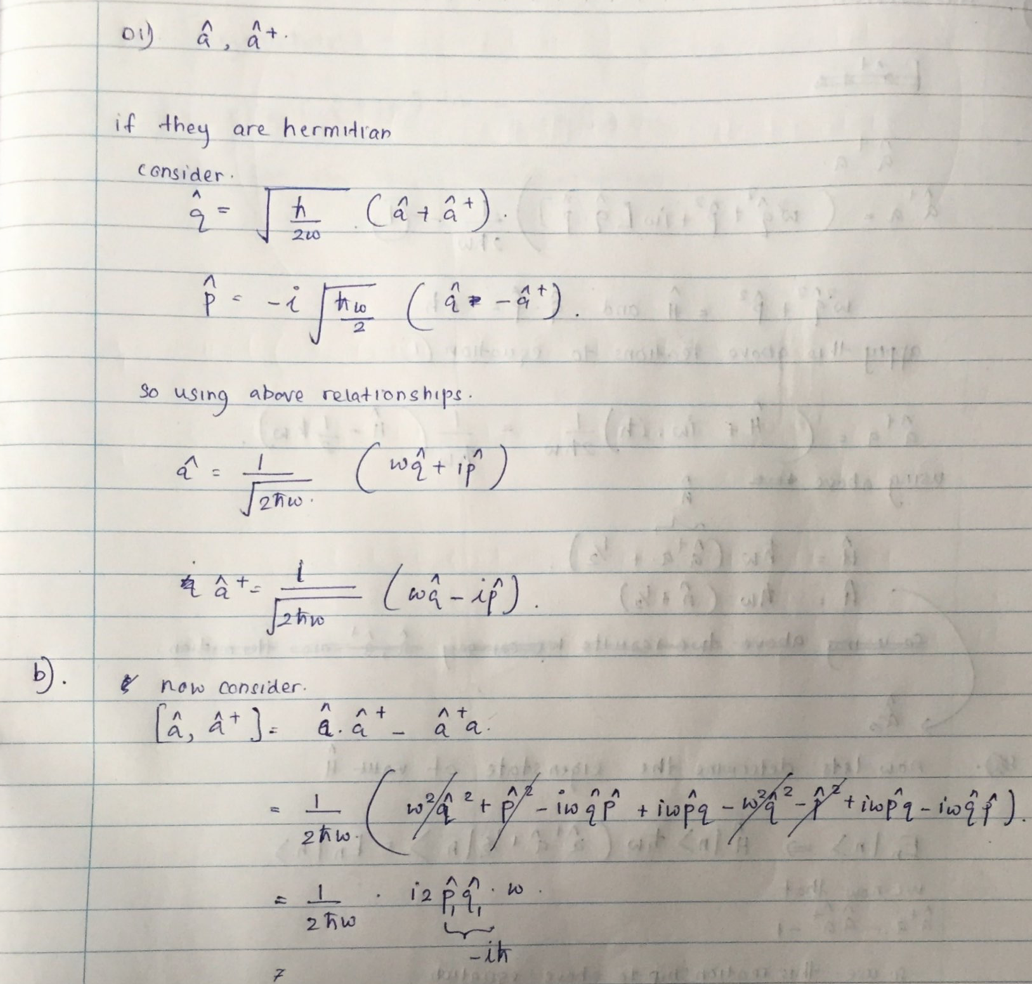 01) â , â⁺.
if they are hermitian
consider.
q̂ = √(ħ/2ω) . (â + â⁺).
p̂ = -i √(ħω/2) (â - â⁺).
so using above relationships.
â = 1/√(2ħω) . (ωq̂ + ip̂)
â⁺ = 1/√(2ħω) (ωq̂ - ip̂).
b). now consider.
[â, â⁺] = â.â⁺ - â⁺a.
= 1/2ħω. (ω²q̂² + p̂² - iωq̂p̂ + iωp̂q - ω²q̂² - p̂² + iωp̂q - iωq̂p̂).
= 1/2ħω . i2 p̂,q̂, . ω .
-iħ